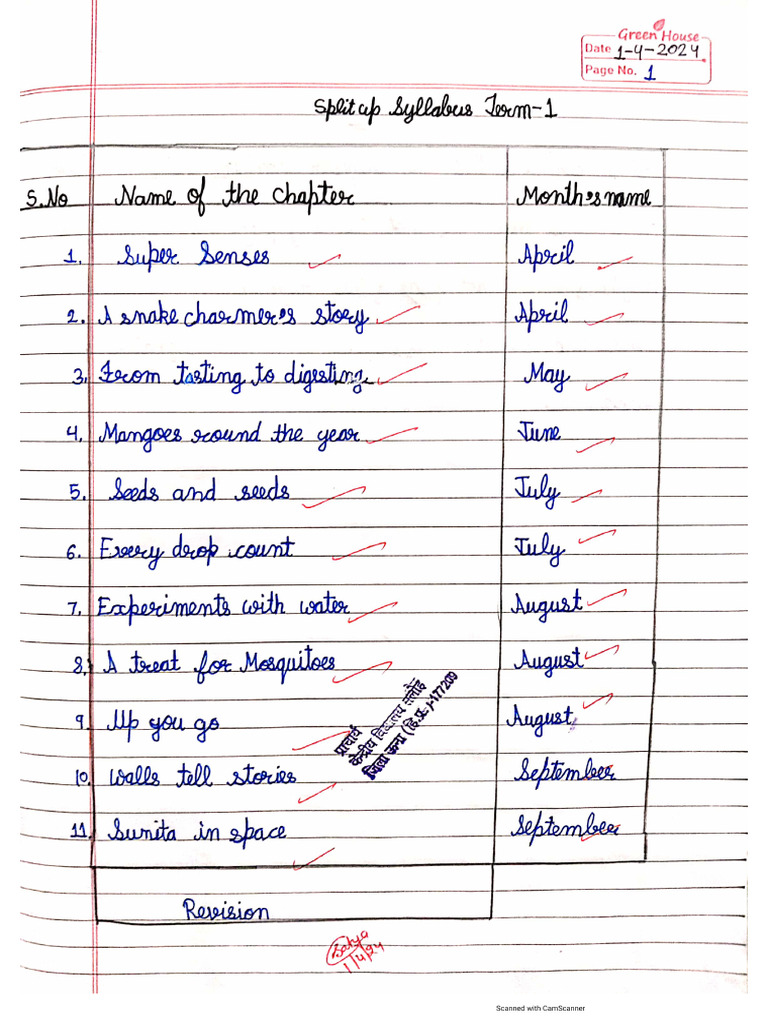 Green House
Date 1-4-2024
Page No. 1
Split up Syllabus Term-1
S.No Name of the chapter Month's name
1. Super Senses April
2. A snake charmer's story April
3. From tasting to digesting May
4. Mangoes round the year June
5. Seeds and seeds July
6. Every drop count July
7. Experiments with water August
8. A treat for Mosquitoes August
9. Up you go August
10. Walls tell stories September
11. Sunita in space September
प्राचार्य
केन्द्रीय विद्यालय सलोह
जिला ऊना (हि.प्र.)-177209
Revision
1/4/24
Scanned with CamScanner